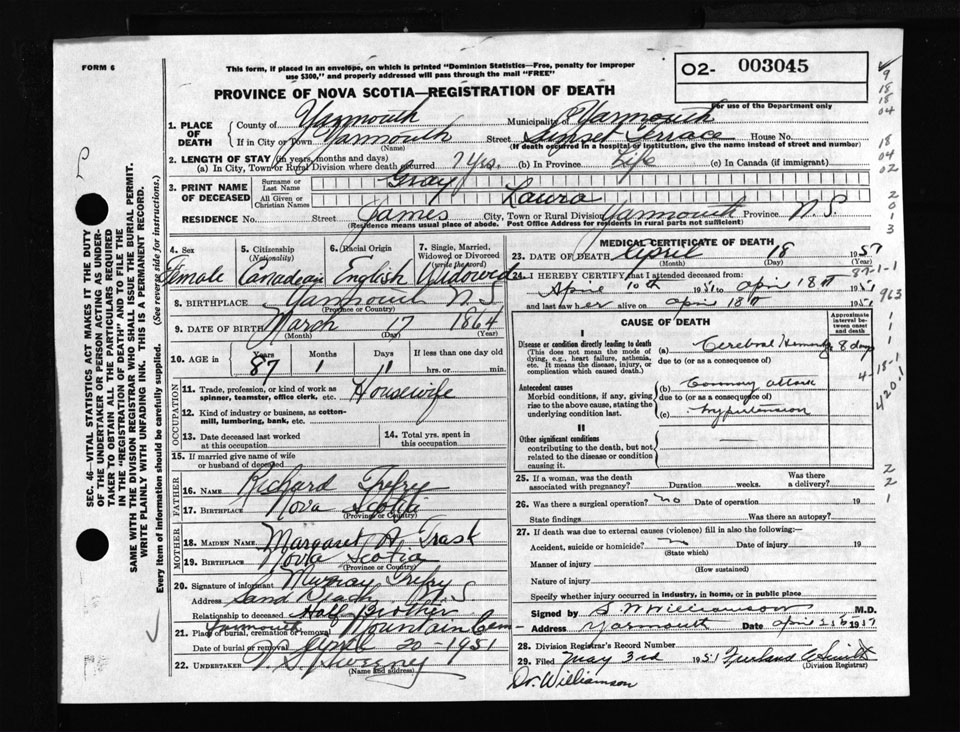 FORM 6
This form, if placed in an envelope, on which is printed "Dominion Statistics—Free, penalty for improper
use $300," and properly addressed will pass through the mail "FREE"
O2- 003045
PROVINCE OF NOVA SCOTIA—REGISTRATION OF DEATH
For use of the Department only
1. PLACE OF DEATH
County of Yarmouth Municipality Yarmouth
If in City or Town Yarmouth Street Sunset Terrace House No.
(Name) (If death occurred in a hospital or institution, give the name instead of street and number)
2. LENGTH OF STAY (in years, months and days)
(a) In City, Town or Rural Division where death occurred 7 Yrs. (b) In Province Life (c) In Canada (if immigrant)
3. PRINT NAME OF DECEASED
Surname or Last Name Gray
All Given or Christian Names Laura
RESIDENCE No. Street James City, Town or Rural Division Yarmouth Province N.S.
(Residence means usual place of abode. Post Office Address for residents in rural parts not sufficient)
4. Sex Female
5. Citizenship (Nationality) Canadian
6. Racial Origin English
7. Single, Married, Widowed or Divorced (write the word) Widowed
8. BIRTHPLACE Yarmouth N S
(Province or Country)
9. DATE OF BIRTH March 17 1864
(Month) (Day) (Year)
10. AGE in Years Months Days If less than one day old
87 1 1 hrs. or min.
OCCUPATION
11. Trade, profession, or kind of work as
spinner, teamster, office clerk, etc. Housewife
12. Kind of industry or business, as cotton-
mill, lumbering, bank, etc.
13. Date deceased last worked
at this occupation
14. Total yrs. spent in
this occupation
15. If married give name of wife
or husband of deceased
FATHER
16. NAME Richard Trefry
17. BIRTHPLACE Nova Scotia
(Province or Country)
MOTHER
18. MAIDEN NAME Margaret H. Trask
19. BIRTHPLACE Nova Scotia
(Province or Country)
20. Signature of informant Murray Trefry
Address Sand Beach N. S
Relationship to deceased Half Brother
21. Place of burial, cremation or removal Yarmouth Mountain Cem
Date of burial or removal April 20 - 1951
22. UNDERTAKER V. S. Sweeney
(Name and address)
MEDICAL CERTIFICATE OF DEATH
23. DATE OF DEATH April 18 1951
(Month) (Day) (Year)
24. I HEREBY CERTIFY that I attended deceased from:
April 10th 1951 to April 18th 1951
and last saw her alive on April 18th 1951
CAUSE OF DEATH
Approximate interval between onset and death
I
Disease or condition directly leading to death
(This does not mean the mode of
dying, e.g., heart failure, asthenia,
etc. It means the disease, injury, or
complication which caused death.)
(a) Cerebral Hemorrhage 8 days
due to (or as a consequence of)
Antecedent causes
Morbid conditions, if any, giving
rise to the above cause, stating the
underlying condition last.
(b) Coronary attack
due to (or as a consequence of)
(c) Hypertension
II
Other significant conditions
contributing to the death, but not
related to the disease or condition
causing it.
25. If a woman, was the death
associated with pregnancy? Duration weeks.
Was there
a delivery?
26. Was there a surgical operation? no Date of operation 19
State findings Was there an autopsy?
27. If death was due to external causes (violence) fill in also the following:—
Accident, suicide or homicide? no Date of injury 19
(State which)
Manner of injury
(How sustained)
Nature of injury
Specify whether injury occurred in industry, in home, or in public place
Signed by S W Williamson M.D.
Address Yarmouth
28. Division Registrar's Record Number
29. Filed May 3rd 1951 Smith
(Division Registrar)
Dr. Williamson
SEC. 46—VITAL STATISTICS ACT MAKES IT THE DUTY
OF THE UNDERTAKER OR PERSON ACTING AS UNDER-
TAKER TO OBTAIN ALL THE PARTICULARS REQUIRED
IN THE "REGISTRATION OF DEATH" AND TO FILE THE
SAME WITH THE DIVISION REGISTRAR WHO SHALL ISSUE THE BURIAL PERMIT.
WRITE PLAINLY WITH UNFADING INK. THIS IS A PERMANENT RECORD.
Every item of information should be carefully supplied. (See reverse side for instructions.)
9
18
18
04
18
04
02
2
0
1
3
87-1-1
963
1
1
1
4-18-1
420.1
2
2
1